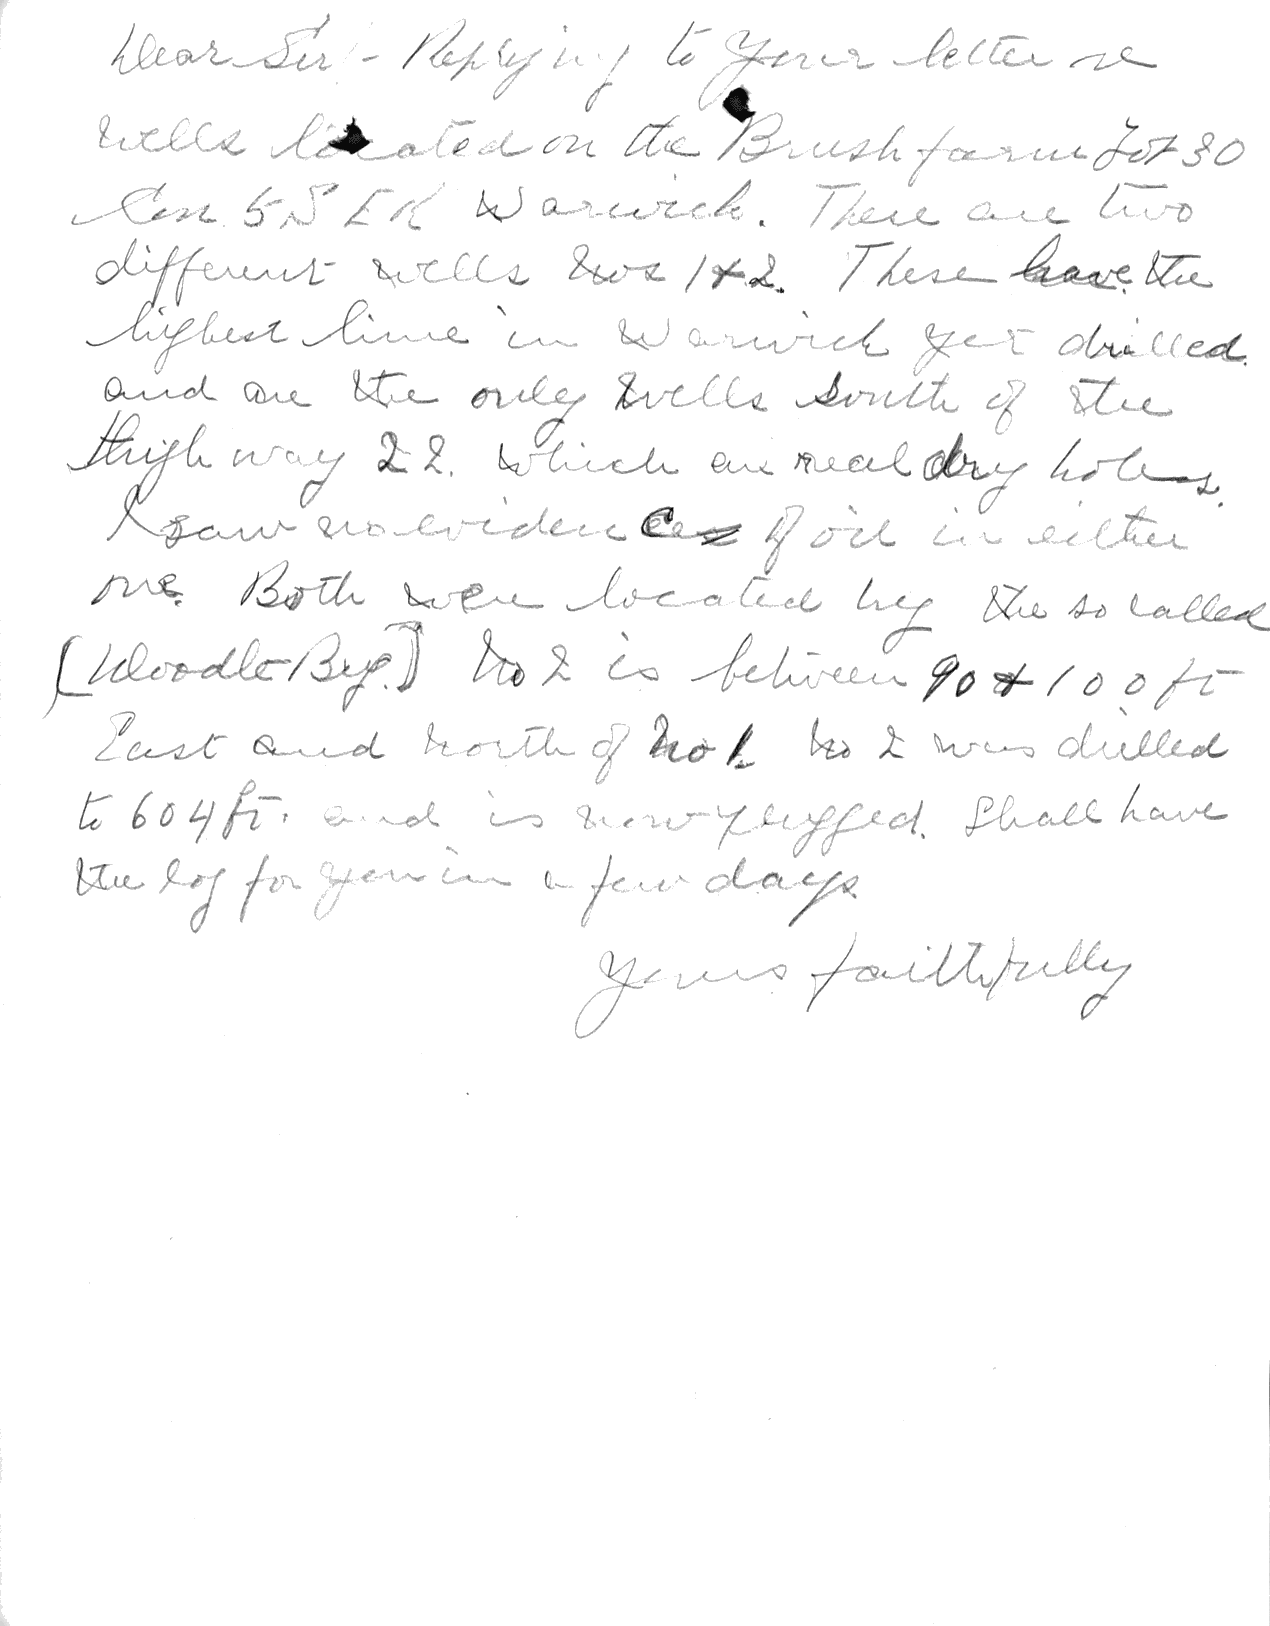 Dear Sir! - Replying to your letter re
wells located on the Brush farm Lot 30
Con 5 S E R Warwick. There are two
different wells Nos 1 & 2. These have the
highest lime in Warwick yet drilled.
and are the only wells south of the
Highway 22. which are real dry holes.
I saw no evidence of oil in either
one. Both were located by the so called
[Doodle Bug.] No 2 is between 90 & 100 ft
East and North of No 1. No 2 was drilled
to 604 ft. and is now plugged. Shall have
the log for you in a few days.
Yours faithfully